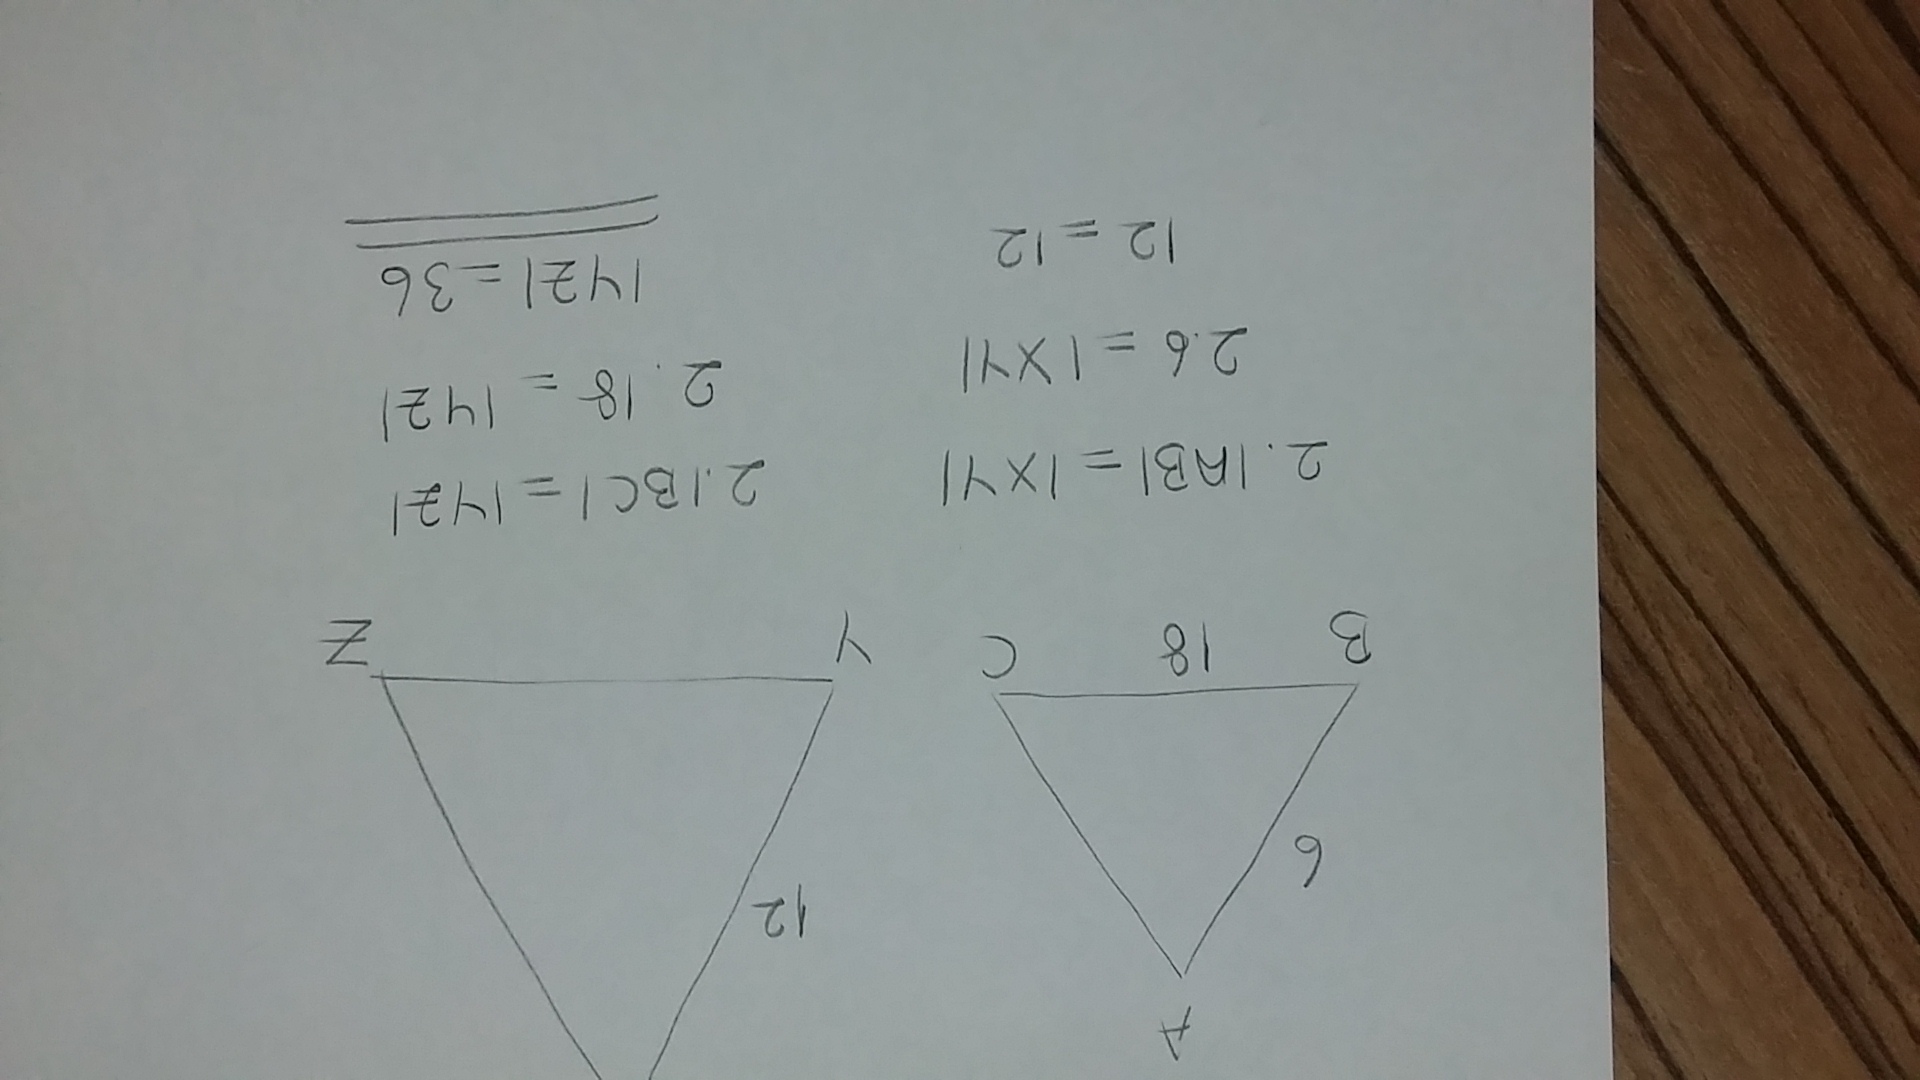 A
6
12
B 18 C
Y Z
2.|AB| = |XY|
2.6 = |XY|
12 = 12
2.|BC| = |YZ|
2.18 = |YZ|
|YZ| = 36